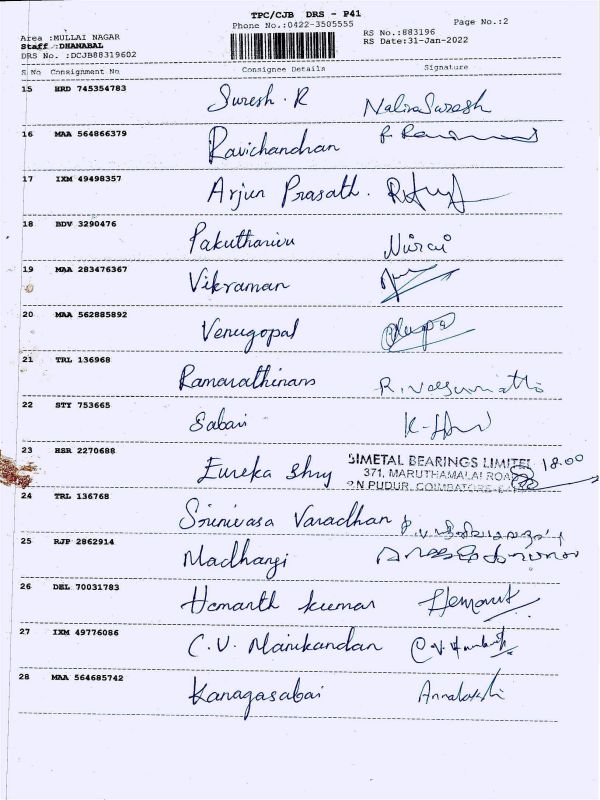 TPC/CJB DRS - P41
Phone No.:0422-3505555 Page No.:2
Area :MULLAI NAGAR RS No.:883196
Staff :DHANABAL RS Date:31-Jan-2022
DRS No. :DCJB88319602
S No Consignment No Consignee Details Signature
15 HRD 745354783 Suresh . R Nalina Suresh
16 MAA 564866379 Ravichandran
17 IXM 49498357 Arjun Prasath .
18 BDV 3290476 Pakutharivu
19 MAA 283476367 Vikraman
20 MAA 562885892 Venugopal
21 TRL 136968 Ramarathinam
22 STY 753665 Sabari
23 HSR 2270688 Eureka Shry SIMETAL BEARINGS LIMITE 18.00
371, MARUTHAMALAI ROAD
P.N PUDUR, COIMBATORE
24 TRL 136768 Srinivasa Varadhan
25 RJP 2862914 Madhangi
26 DEL 70031783 Hemanth kumar Hemant
27 IXM 49776086 C.V. Manikandan
28 MAA 564685742 Kanagasabai